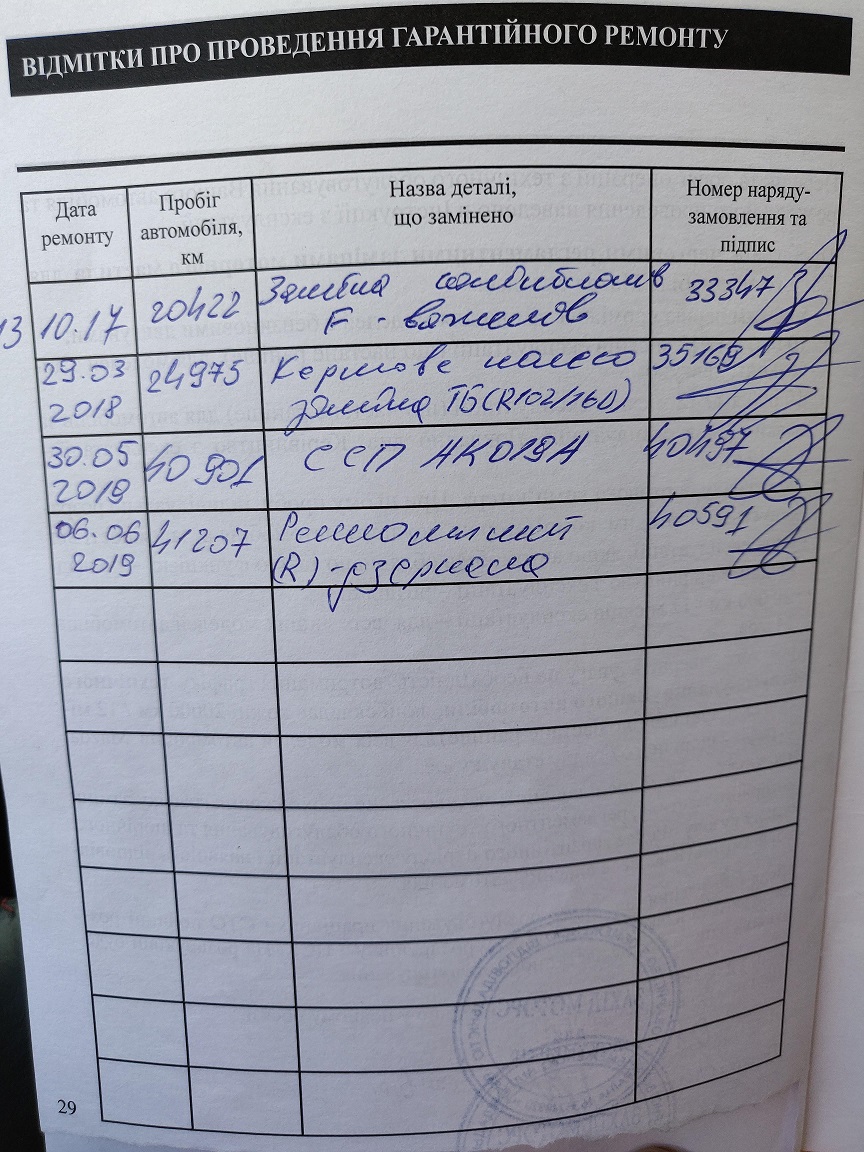 ВІДМІТКИ ПРО ПРОВЕДЕННЯ ГАРАНТІЙНОГО РЕМОНТУ
Дата ремонту
Пробіг автомобіля, км
Назва деталі, що замінено
Номер наряду-замовлення та підпис
13 10.17 20422 Заміна сайлентблоків 33347
F - важелів
29.03 24975 Кермове колесо 35169
2018 заміна ТБ(R102/16D)
30.05 40901 ССП АК019А 40497
2019
06.06 41207 Ремкомплект 40591
2019 (R) - дзеркала
29